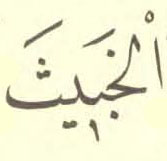 الْخَبٖيثَ